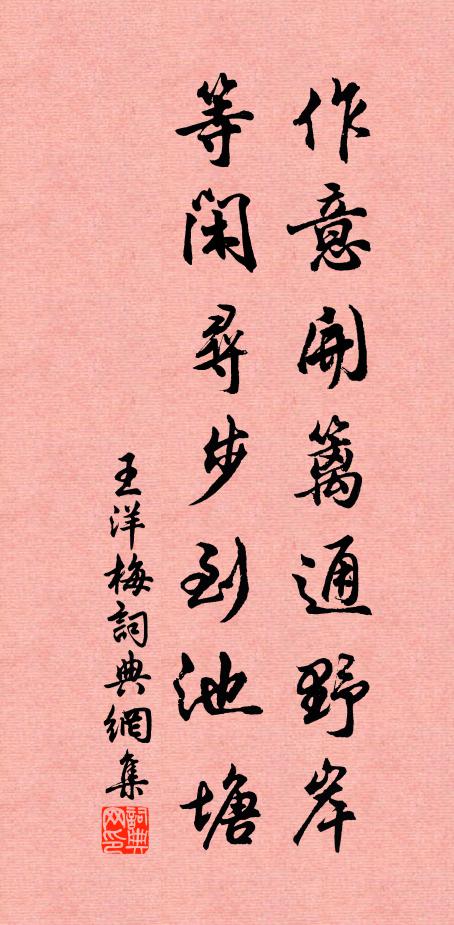 作意開篱通野岸
等閑尋步到池塘
王洋梅詞典網集
詞典网印